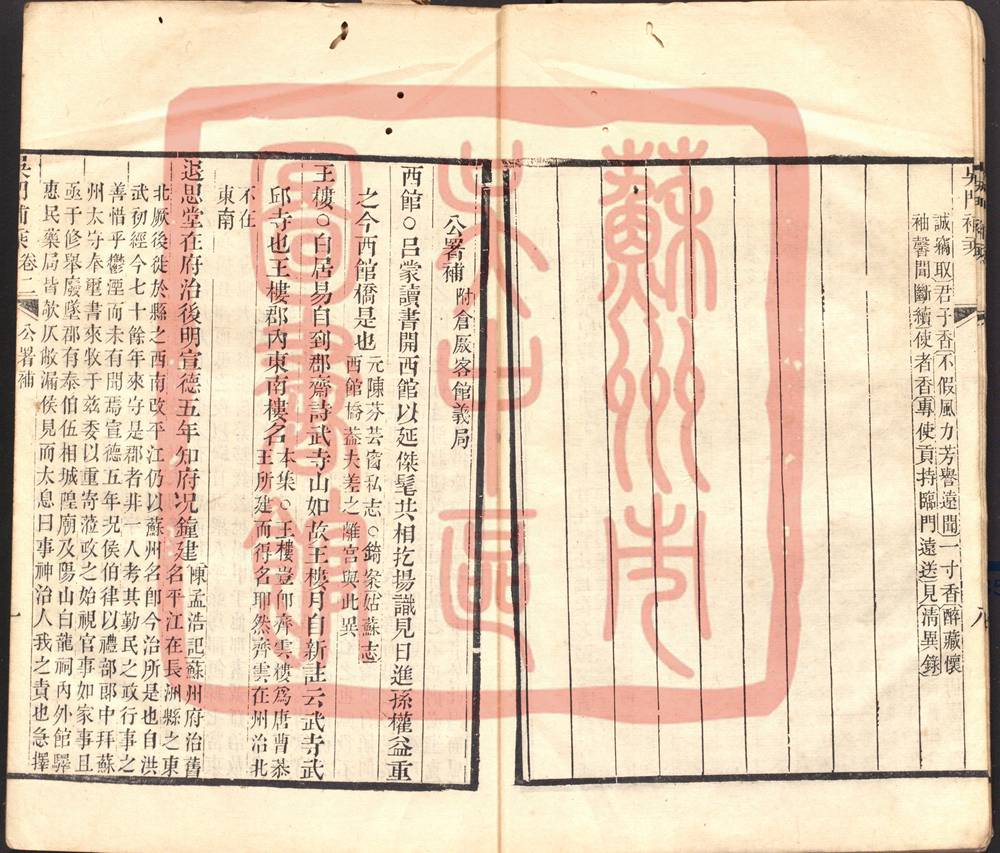 誠痛取君子香不假風力芳譽遠聞一寸香醉藏懷
袖馨聞斷續使者香專使貢持臨門遠送見清異錄
八
公署補附倉廒客館義局
西館○呂蒙讀書開西館以延傑髦共相扢揚識見日進孫權益重
之今西館橋是也元陳芬芸窗私志○錡案姑蘇志
西館橋蓋夫差之離宮與此異
王樓○白居易自到郡齋詩武寺山如故王樓月自新註云武寺武
邱寺也王樓郡內東南樓名本集○王樓豈卽齊雲樓爲唐曹恭
王所建而得名耶然齊雲在州治北
不在
東南
退思堂在府治後明宣德五年知府况鐘建陳孟浩記蘇州府治舊
名平江在長洲縣之東
北厥後徙於縣之西南改平江仍以蘇州名卽今治所是也自洪
武初經今七十餘年來守是郡者非一人考其勤民之政行事之
善惜乎鬱湮而未有聞焉宣德五年况侯伯律以禮部郞中拜蘇
州太守奉璽書來牧于兹委以重寄蒞政之始視官事如家事且
亟于修舉廢墜郡有泰伯伍相城隍廟及陽山白龍祠內外館驛
惠民藥局皆欹仄敝漏侯見而太息曰事神治人我之責也急擇
卷二
公署補
一
蘇州市吳中區圖書館